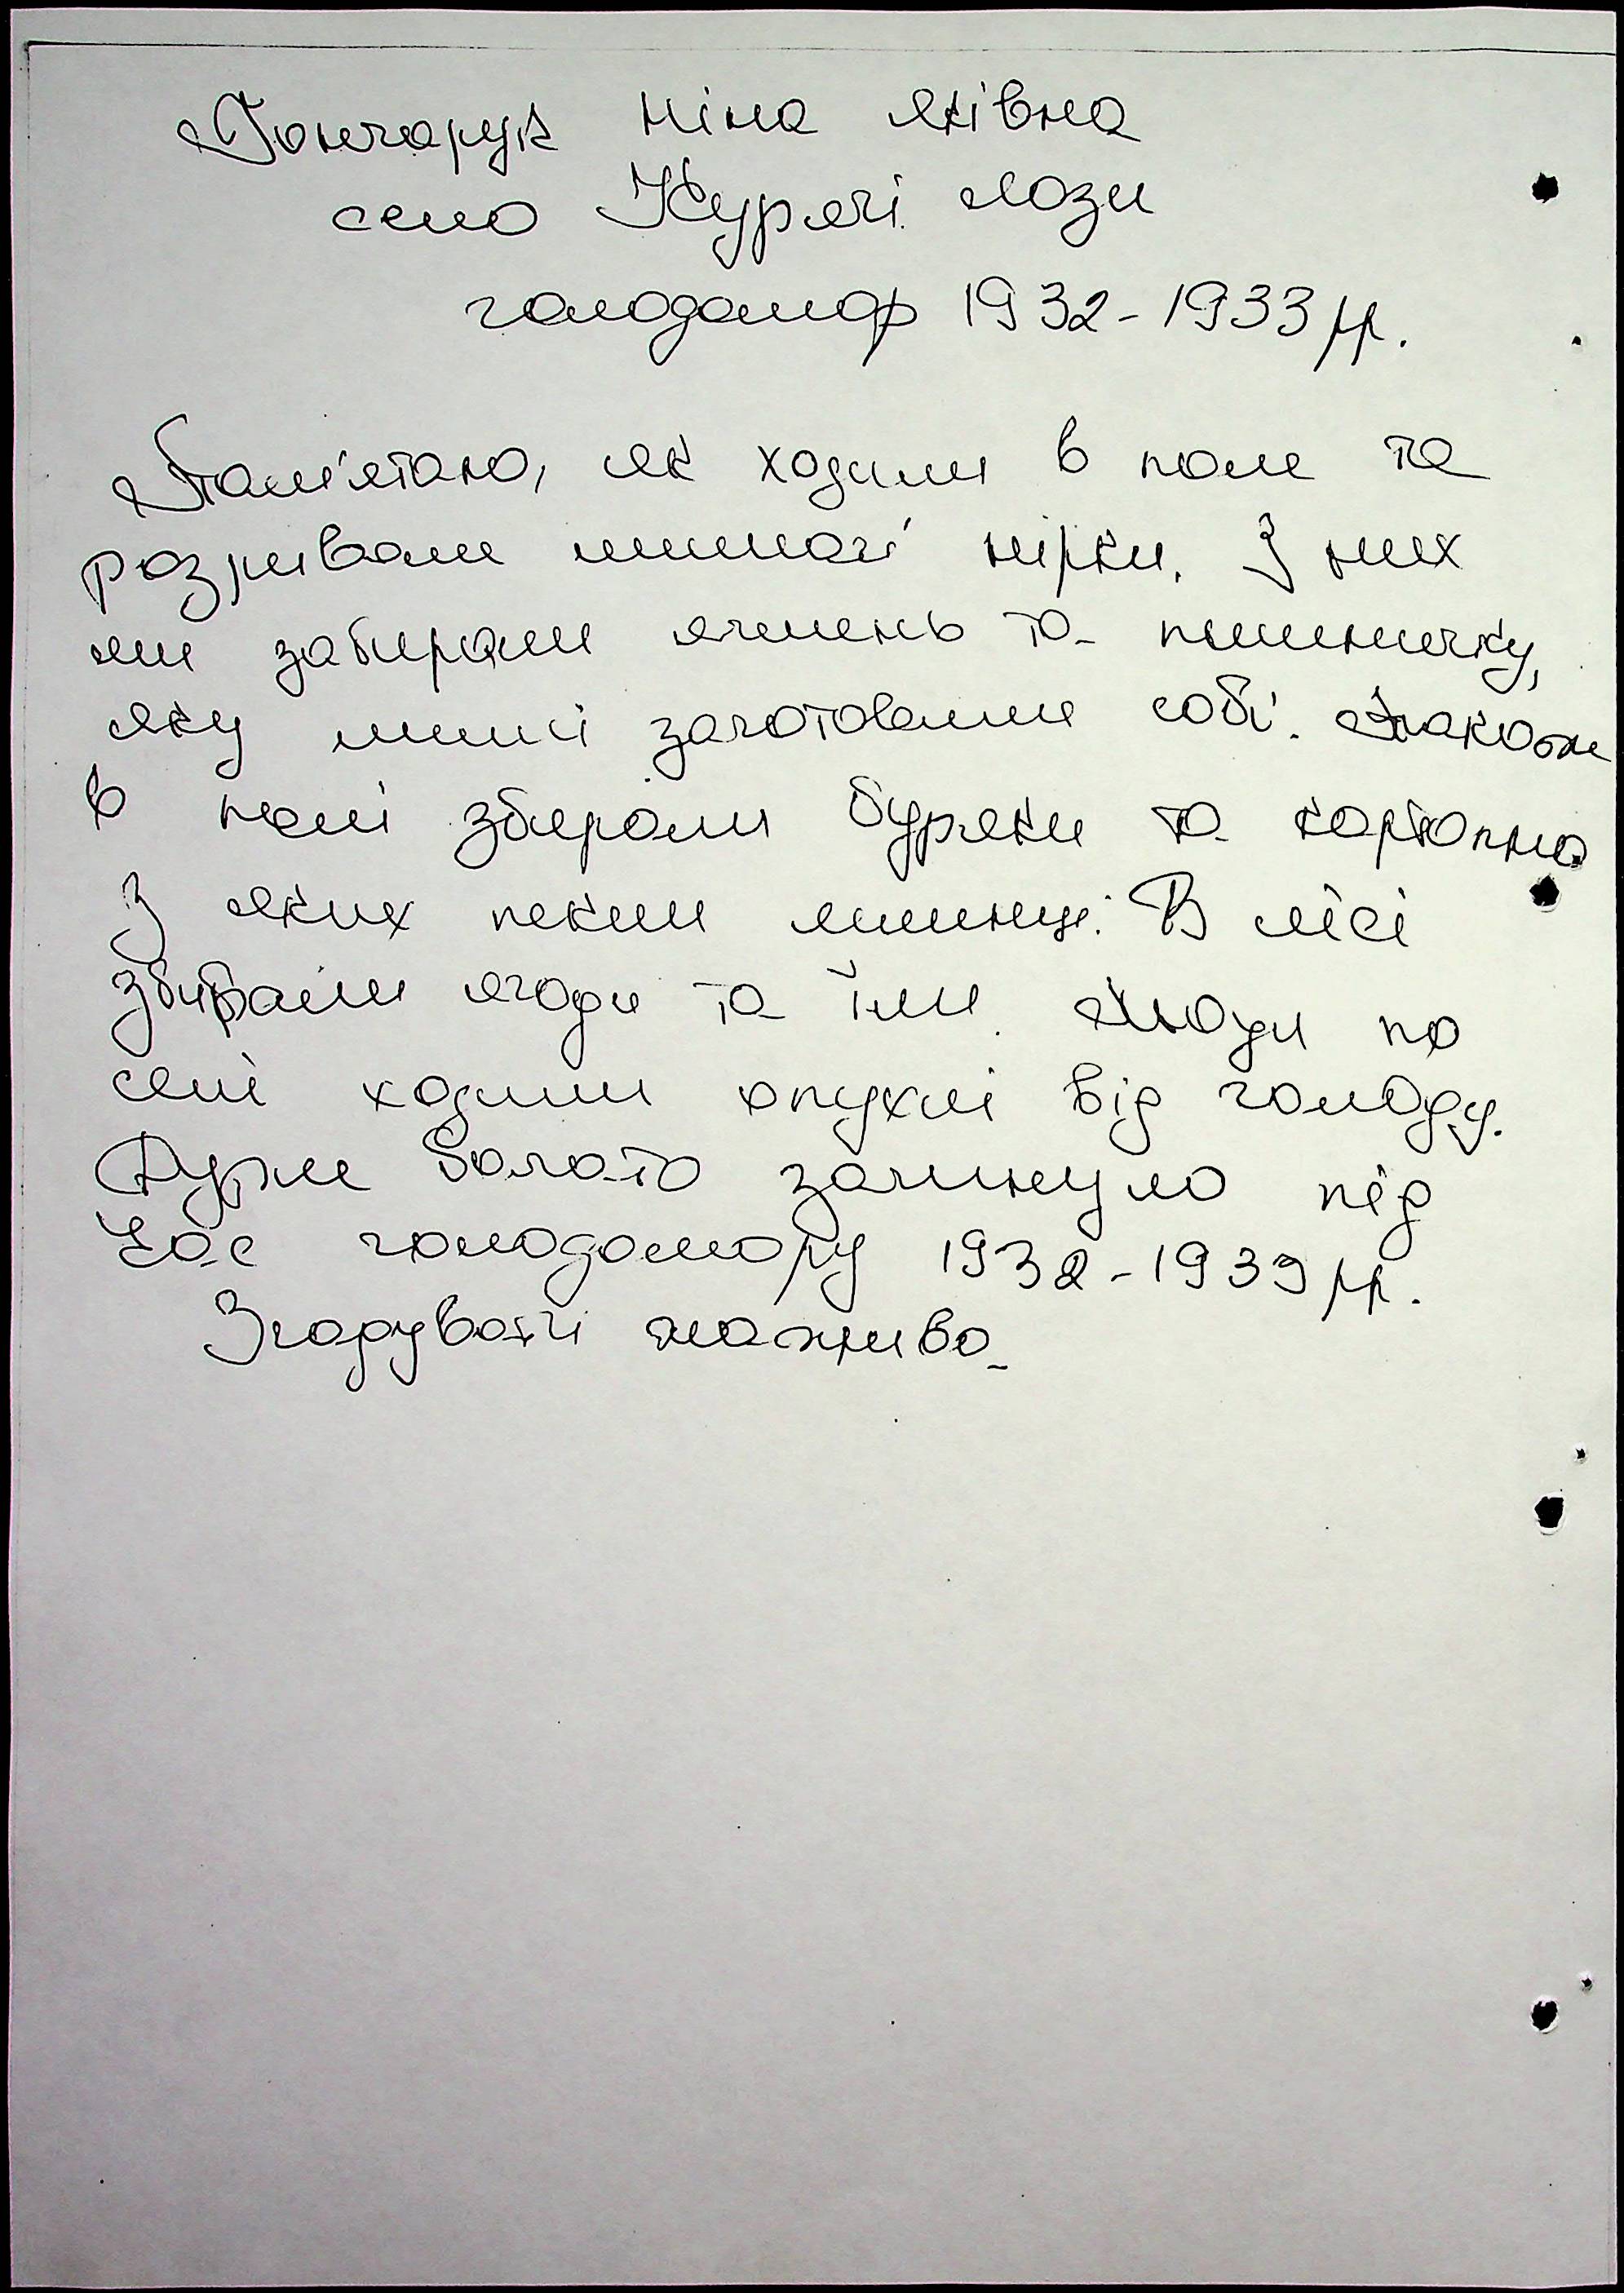 Гончарук Ніна Яківна
село Курячі Лози
голодомор 1932-1933 рр.
Пам'ятаю, як ходили в поле та
розривали мишачі нірки. З них
ми забирали ячмень та пшеничку,
яку миші заготовили собі. Також
в полі збирали буряки та картоплю
З яких пекли млинці. В лісі
збирали ягоди та їли. Люди по
селі ходили опухлі від голоду.
Дуже багато загинуло під
час голодомору 1932-1933 рр.
Згадувати жахливо.